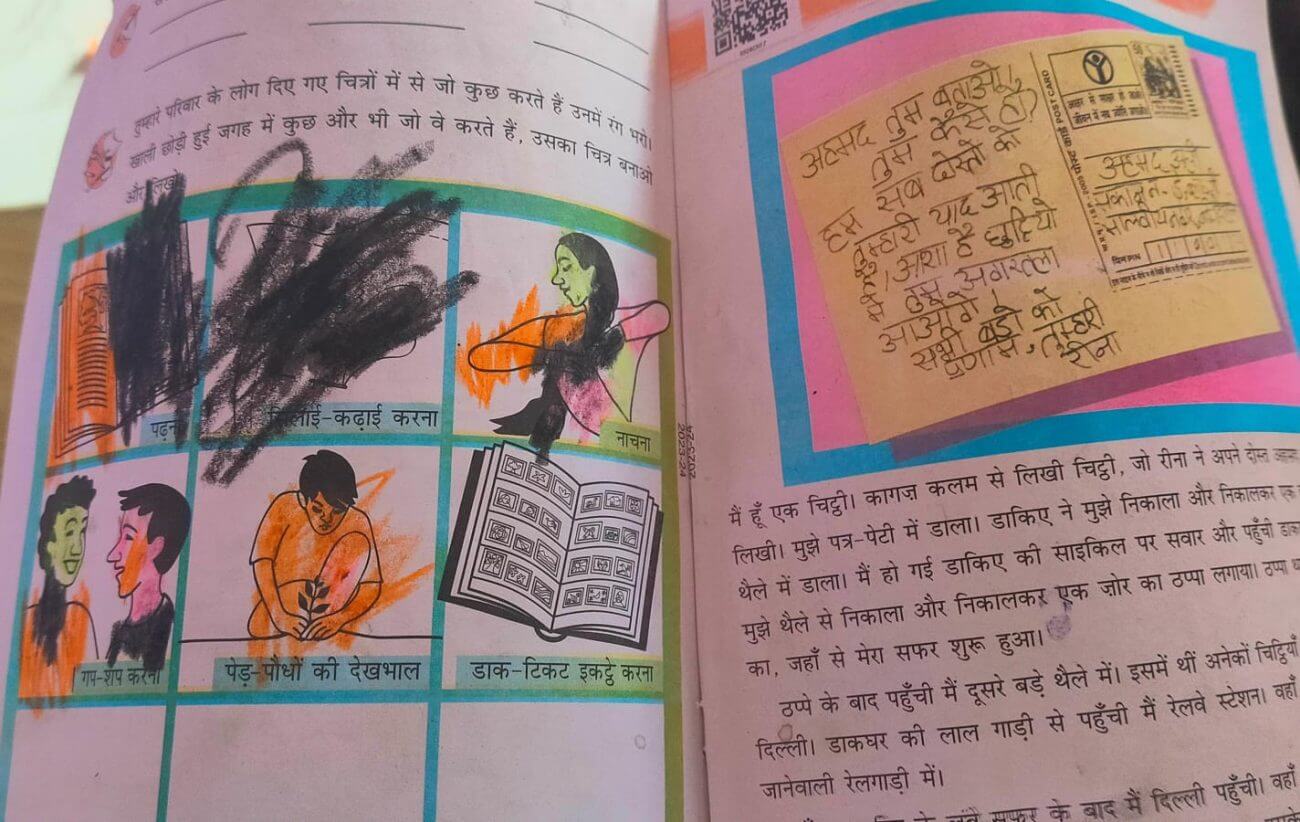 तुम्हारे परिवार के लोग दिए गए चित्रों में से जो कुछ करते हैं उनमें रंग भरो।
खाली छोड़ी हुई जगह में कुछ और भी जो वे करते हैं, उसका चित्र बनाओ
और लिखो
नाचना
गप-शप करना
पेड़-पौधों की देखभाल
डाक-टिकट इकट्ठे करना
कढ़ाई करना
2023-24
अहमद तुम बताओ,
तुम कैसे हो?
हम सब दोस्तों को
तुम्हारी याद आती
है, आशा है छुट्टियों
में तुम अगरतला
आओगे।
सभी बड़ों को
प्रणाम, तुम्हारी
रीना
POST CARD
अहमद अली
पिन PIN
मैं हूँ एक चिट्ठी। कागज़ कलम से लिखी चिट्ठी, जो रीना ने अपने दोस्त
लिखी। मुझे पत्र-पेटी में डाला। डाकिए ने मुझे निकाला और निकालकर एक
थैले में डाला। मैं हो गई डाकिए की साइकिल पर सवार और पहुँची
मुझे थैले से निकाला और निकालकर एक ज़ोर का ठप्पा लगाया। ठप्पा
का, जहाँ से मेरा सफर शुरू हुआ।
ठप्पे के बाद पहुँची मैं दूसरे बड़े थैले में। इसमें थीं अनेकों चिट्ठियाँ
दिल्ली। डाकघर की लाल गाड़ी से पहुँची मैं रेलवे स्टेशन। वहाँ
जानेवाली रेलगाड़ी में।
सफर के बाद मैं दिल्ली पहुँची। वहाँ